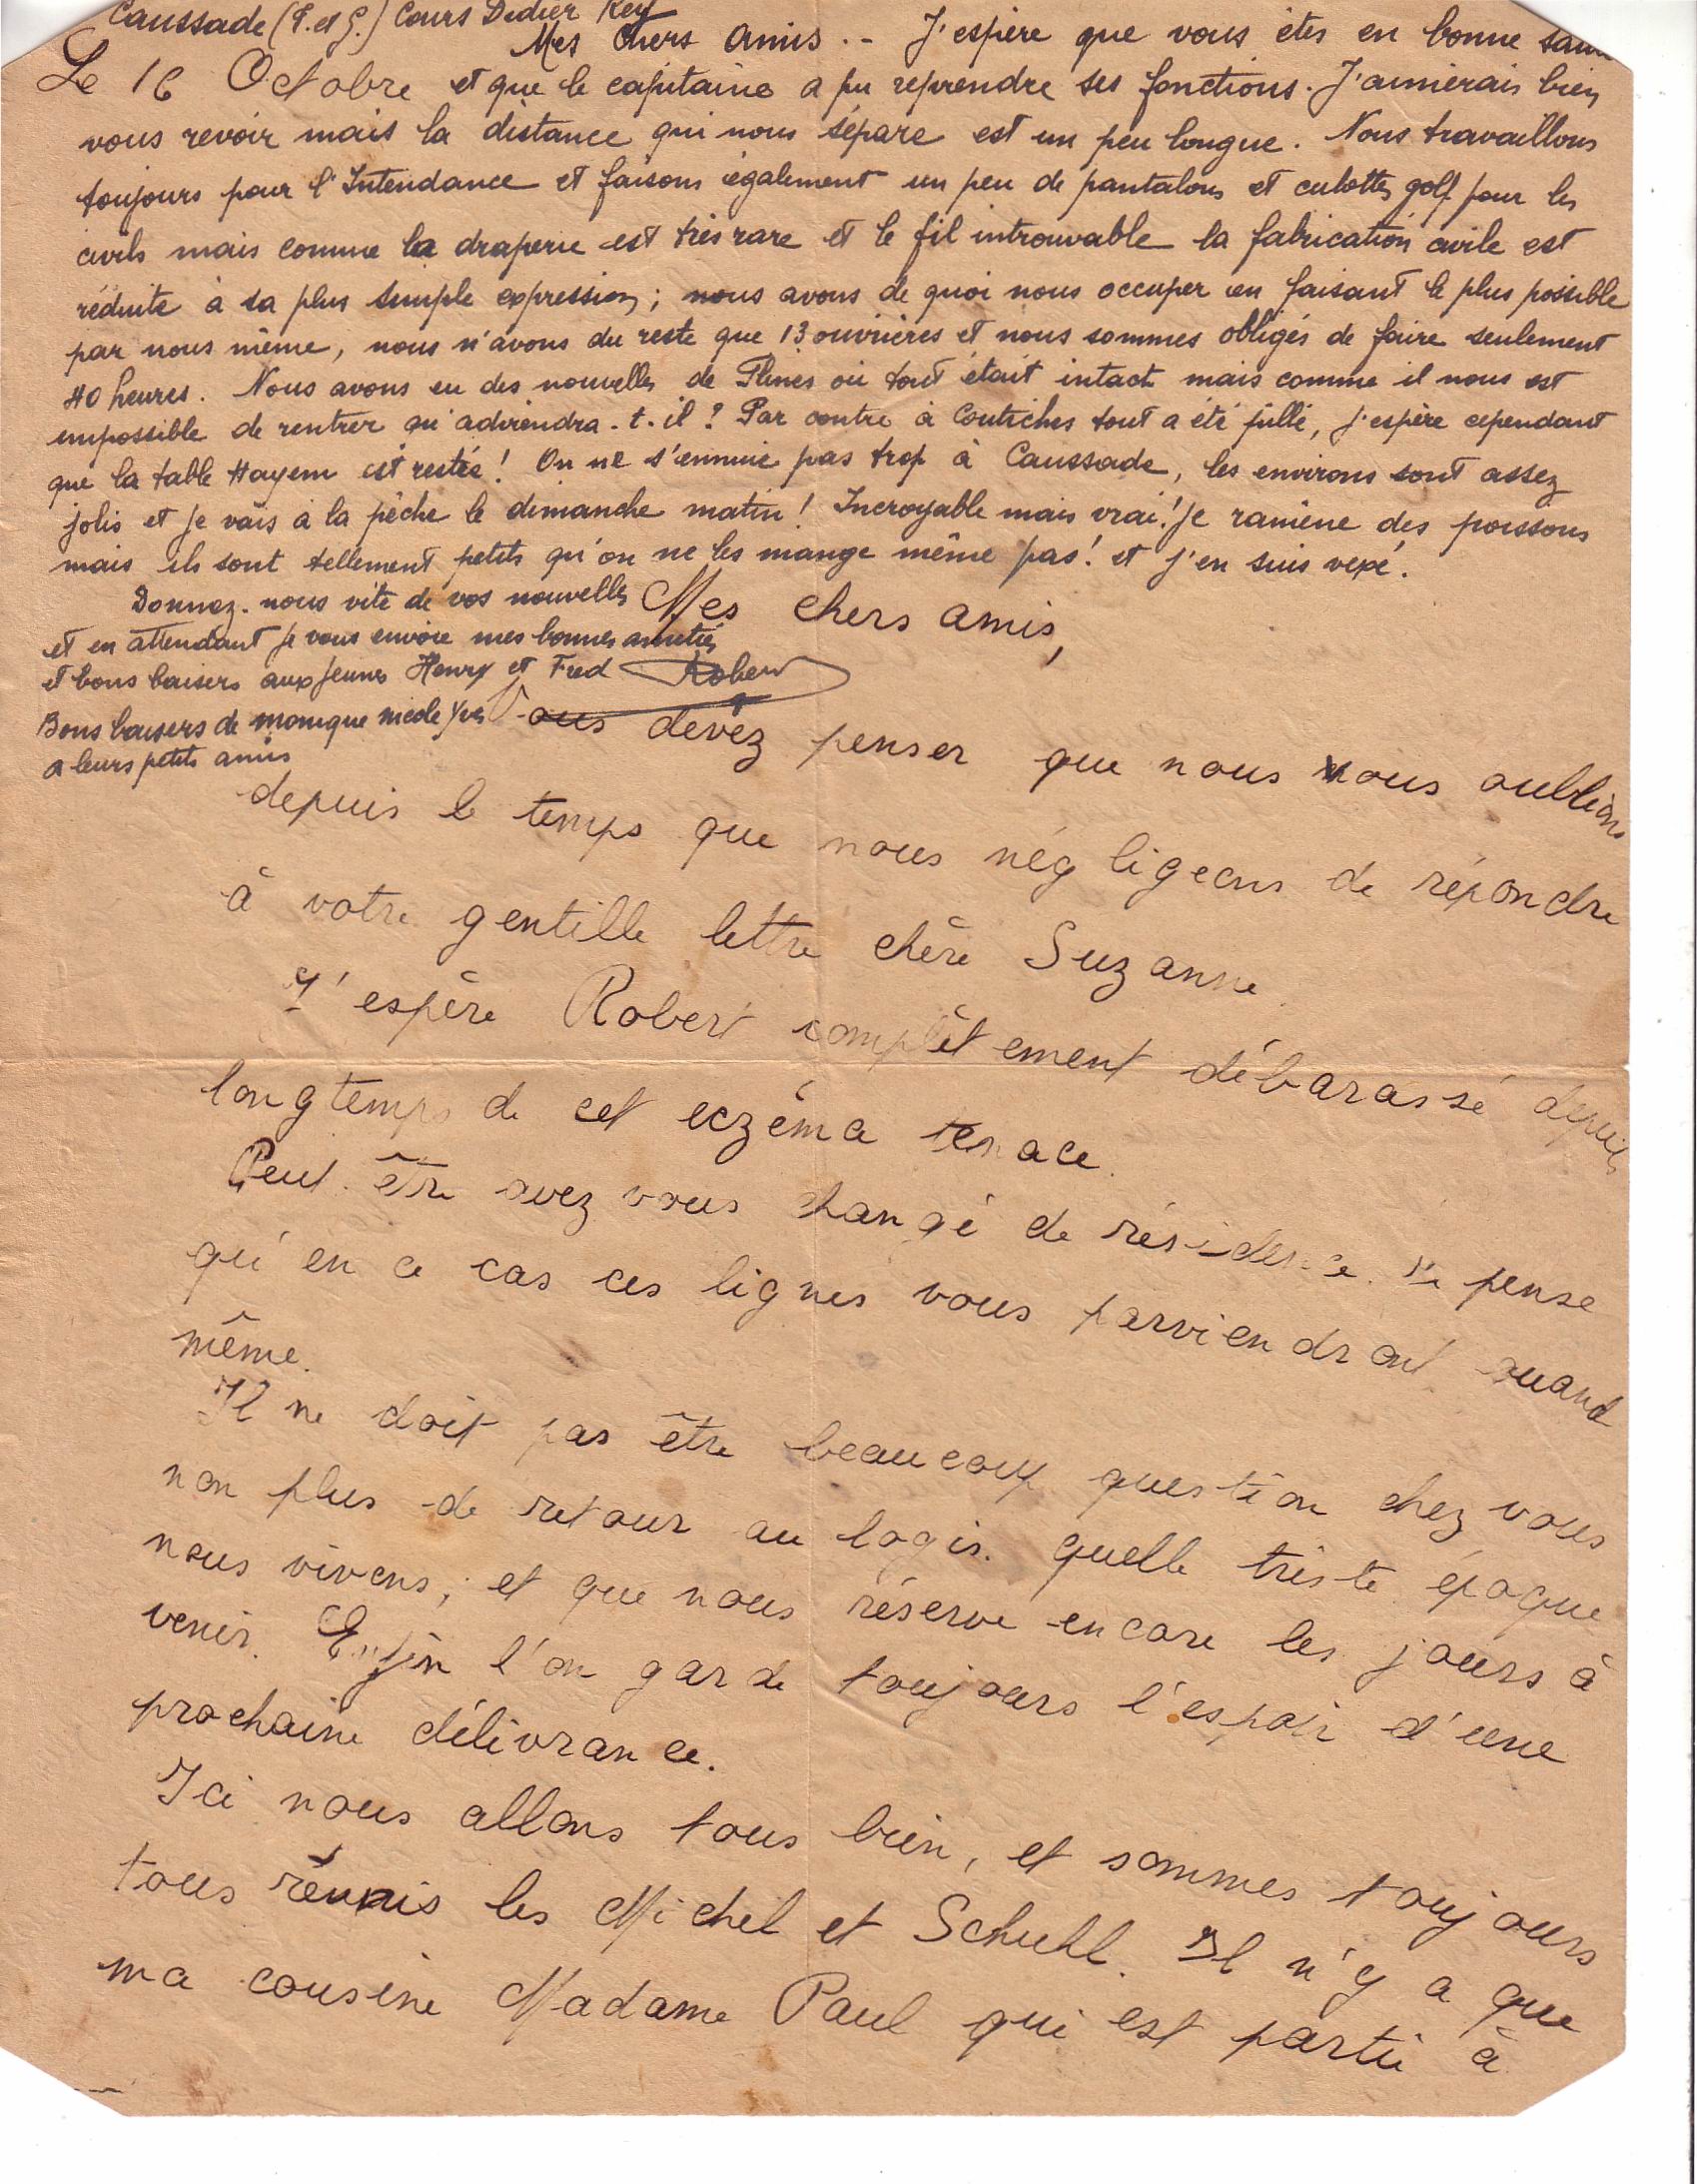 Caussade (T. et G.) Cours Didier Rey
Mes chers amis. - J'espère que vous êtes en bonne santé
Le 16 Octobre et que le capitaine a pu reprendre ses fonctions. J'aimerais bien
vous revoir mais la distance qui nous sépare est un peu longue. Nous travaillons
toujours pour l'Intendance et faisons également un peu de pantalons et culottes golf pour les
civils mais comme la draperie est très rare et le fil introuvable la fabrication civile est
réduite à sa plus simple expression; nous avons de quoi nous occuper en faisant le plus possible
par nous même, nous n'avons du reste que 13 ouvrières et nous sommes obligés de faire seulement
40 heures. Nous avons eu des nouvelles de Flines où tout était intact mais comme il nous est
impossible de rentrer qu'adviendra-t-il? Par contre à Coutiches tout a été pillé, j'espère cependant
que la table Hayem est restée! On ne s'ennuie pas trop à Caussade, les environs sont assez
jolis et je vais à la pêche le dimanche matin! Incroyable mais vrai! je ramène des poissons
mais ils sont tellement petits qu'on ne les mange même pas! et j'en suis vexé.
Donnez-nous vite de vos nouvelles
et en attendant je vous envoie mes bonnes amitiés
et bons baisers aux jeunes Henry et Fred Robert
Bons baisers de monique nicole Yves
a leurs petits amis
Mes chers amis,
Vous devez penser que nous vous oublions
depuis le temps que nous négligeons de répondre
à votre gentille lettre chère Suzanne.
J'espère Robert complètement débarassé depuis
longtemps de cet eczéma tenace.
Peut-être avez vous changé de résidence. Je pense
qu'en ce cas ces lignes vous parviendront quand
même.
Il ne doit pas être beaucoup question chez vous
non plus de retour au logis. quelle triste époque
nous vivons; et que nous réserve encore les jours à
venir. Enfin l'on garde toujours l'espoir d'une
prochaine délivrance.
Ici nous allons tous bien, et sommes toujours
tous réunis les Michel et Schuhl. Il n'y a que
ma cousine Madame Paul qui est partie à